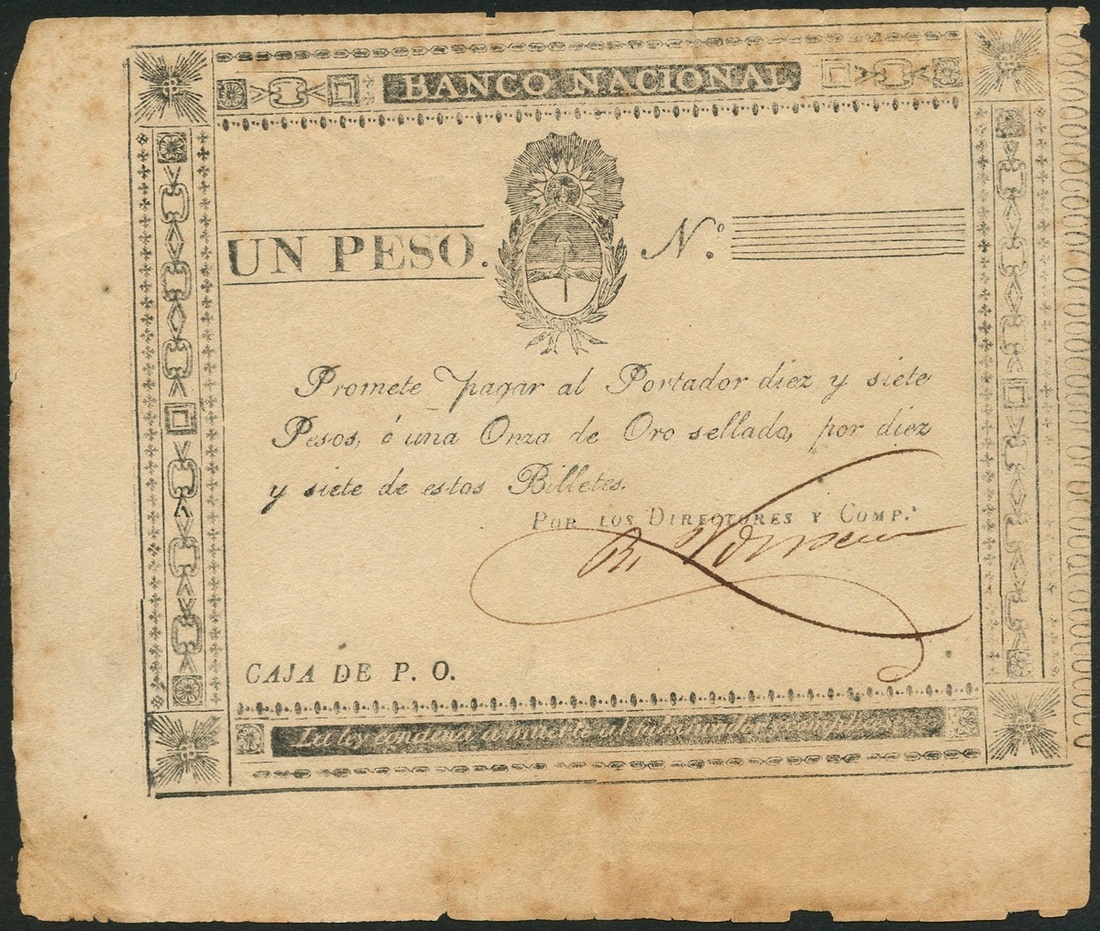 BANCO NACIONAL
UN PESO. N.º
Promete pagar al Portador diez y siete
Pesos, ó una Onza de Oro sellado, por diez
y siete de estos Billetes.
POR LOS DIRECTORES Y COMP.ª
CAJA DE P. O.
La ley condena a muerte al falsificador